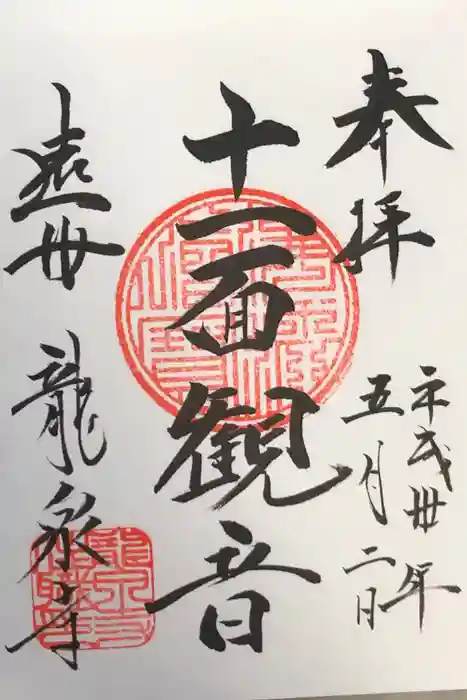 奉拝
平成卅年
五月二日
十一面観音
遠州 龍泉寺